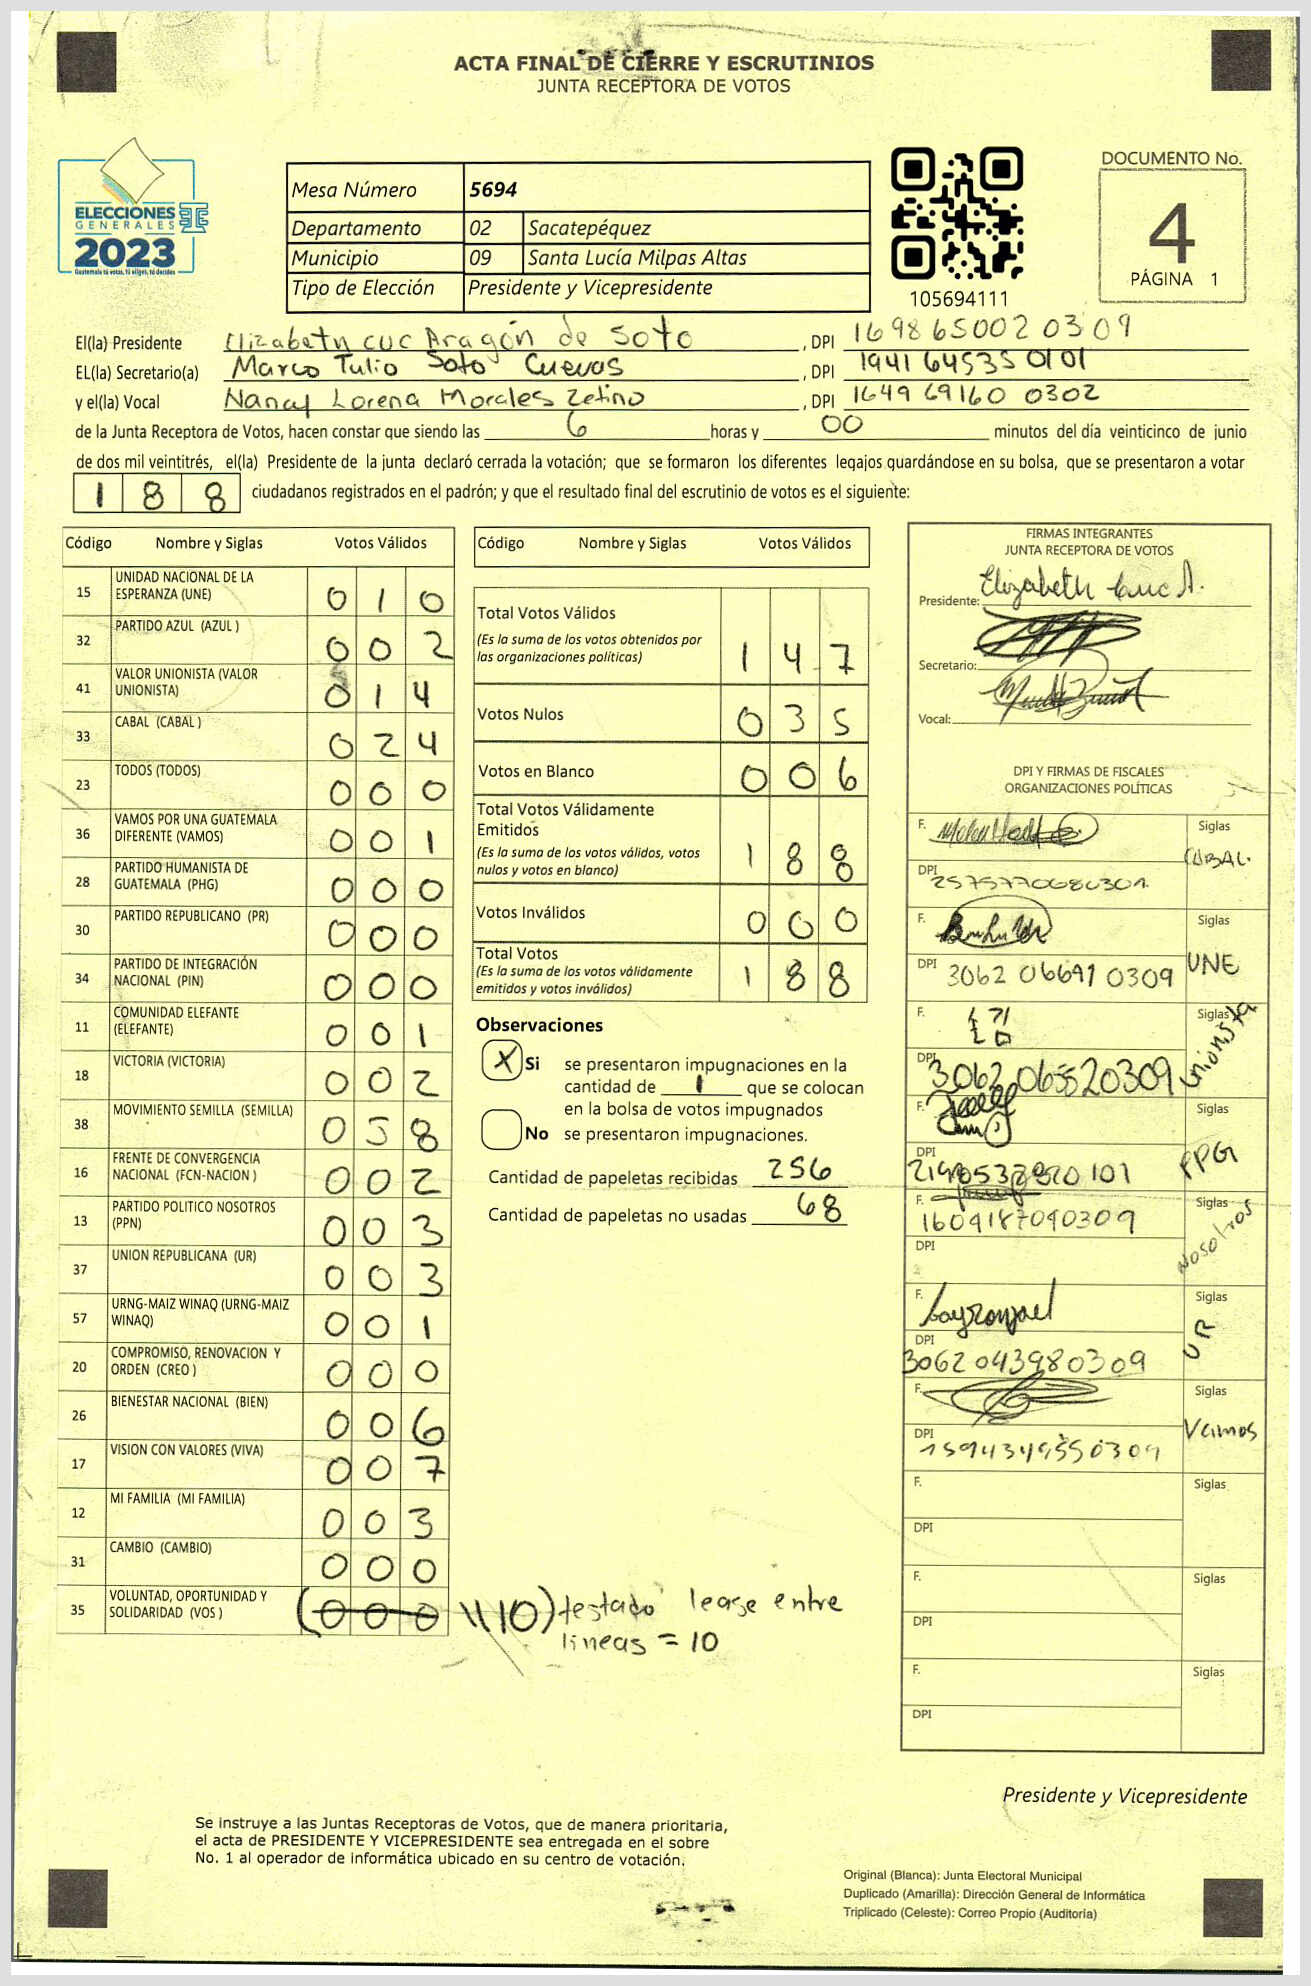 ACTA FINAL DE CIERRE Y ESCRUTINIOS
JUNTA RECEPTORA DE VOTOS
ELECCIONES
GENERALES
2023
Guatemala tú votas, tú eliges, tú decides
Mesa Número 5694
Departamento 02 Sacatepéquez
Municipio 09 Santa Lucía Milpas Altas
Tipo de Elección Presidente y Vicepresidente
105694111
DOCUMENTO No.
4
PÁGINA 1
El(la) Presidente Elizabeth cuc Aragón de Soto , DPI 1698650020309
EL(la) Secretario(a) Marco Tulio Soto Cuevas , DPI 1941645350101
y el(la) Vocal Nancy Lorena Morales Zetino , DPI 1649691600302
de la Junta Receptora de Votos, hacen constar que siendo las 6 horas y 00 minutos del día veinticinco de junio
de dos mil veintitrés, el(la) Presidente de la junta declaró cerrada la votación; que se formaron los diferentes legajos guardándose en su bolsa, que se presentaron a votar
188 ciudadanos registrados en el padrón; y que el resultado final del escrutinio de votos es el siguiente:
Código Nombre y Siglas Votos Válidos
15 UNIDAD NACIONAL DE LA ESPERANZA (UNE) 010
32 PARTIDO AZUL (AZUL ) 002
41 VALOR UNIONISTA (VALOR UNIONISTA) 014
33 CABAL (CABAL ) 024
23 TODOS (TODOS) 000
36 VAMOS POR UNA GUATEMALA DIFERENTE (VAMOS) 001
28 PARTIDO HUMANISTA DE GUATEMALA (PHG) 000
30 PARTIDO REPUBLICANO (PR) 000
34 PARTIDO DE INTEGRACIÓN NACIONAL (PIN) 000
11 COMUNIDAD ELEFANTE (ELEFANTE) 001
18 VICTORIA (VICTORIA) 002
38 MOVIMIENTO SEMILLA (SEMILLA) 058
16 FRENTE DE CONVERGENCIA NACIONAL (FCN-NACION ) 002
13 PARTIDO POLITICO NOSOTROS (PPN) 003
37 UNION REPUBLICANA (UR) 003
57 URNG-MAIZ WINAQ (URNG-MAIZ WINAQ) 001
20 COMPROMISO, RENOVACION Y ORDEN (CREO ) 000
26 BIENESTAR NACIONAL (BIEN) 006
17 VISION CON VALORES (VIVA) 007
12 MI FAMILIA (MI FAMILIA) 003
31 CAMBIO (CAMBIO) 000
35 VOLUNTAD, OPORTUNIDAD Y SOLIDARIDAD (VOS ) (000 \\10) testado lease entre
lineas = 10
Código Nombre y Siglas Votos Válidos
Total Votos Válidos 147
(Es la suma de los votos obtenidos por
las organizaciones políticas)
Votos Nulos 035
Votos en Blanco 006
Total Votos Válidamente
Emitidos 188
(Es la suma de los votos válidos, votos
nulos y votos en blanco)
Votos Inválidos 000
Total Votos 188
(Es la suma de los votos válidamente
emitidos y votos inválidos)
Observaciones
X Si se presentaron impugnaciones en la
cantidad de 1 que se colocan
en la bolsa de votos impugnados
No se presentaron impugnaciones.
Cantidad de papeletas recibidas 256
Cantidad de papeletas no usadas 68
FIRMAS INTEGRANTES
JUNTA RECEPTORA DE VOTOS
Presidente: Elizabeth Cuc A.
Secretario:
Vocal:
DPI Y FIRMAS DE FISCALES
ORGANIZACIONES POLÍTICAS
F. Siglas CABAL.
DPI 2575770680301
F. Siglas UNE
DPI 3062 06691 0309
F. Siglas Unionista
DPI 3062 065520309
F. Siglas PPG
DPI
F. Siglas Nosotros
1609187090309
DPI
F. Siglas UR
DPI 3062043980309
F. Siglas Vamos
DPI 1594349550309
F. Siglas
DPI
F. Siglas
DPI
F. Siglas
DPI
Presidente y Vicepresidente
Se instruye a las Juntas Receptoras de Votos, que de manera prioritaria,
el acta de PRESIDENTE Y VICEPRESIDENTE sea entregada en el sobre
No. 1 al operador de informática ubicado en su centro de votación.
Original (Blanca): Junta Electoral Municipal
Duplicado (Amarilla): Dirección General de Informática
Triplicado (Celeste): Correo Propio (Auditoría)